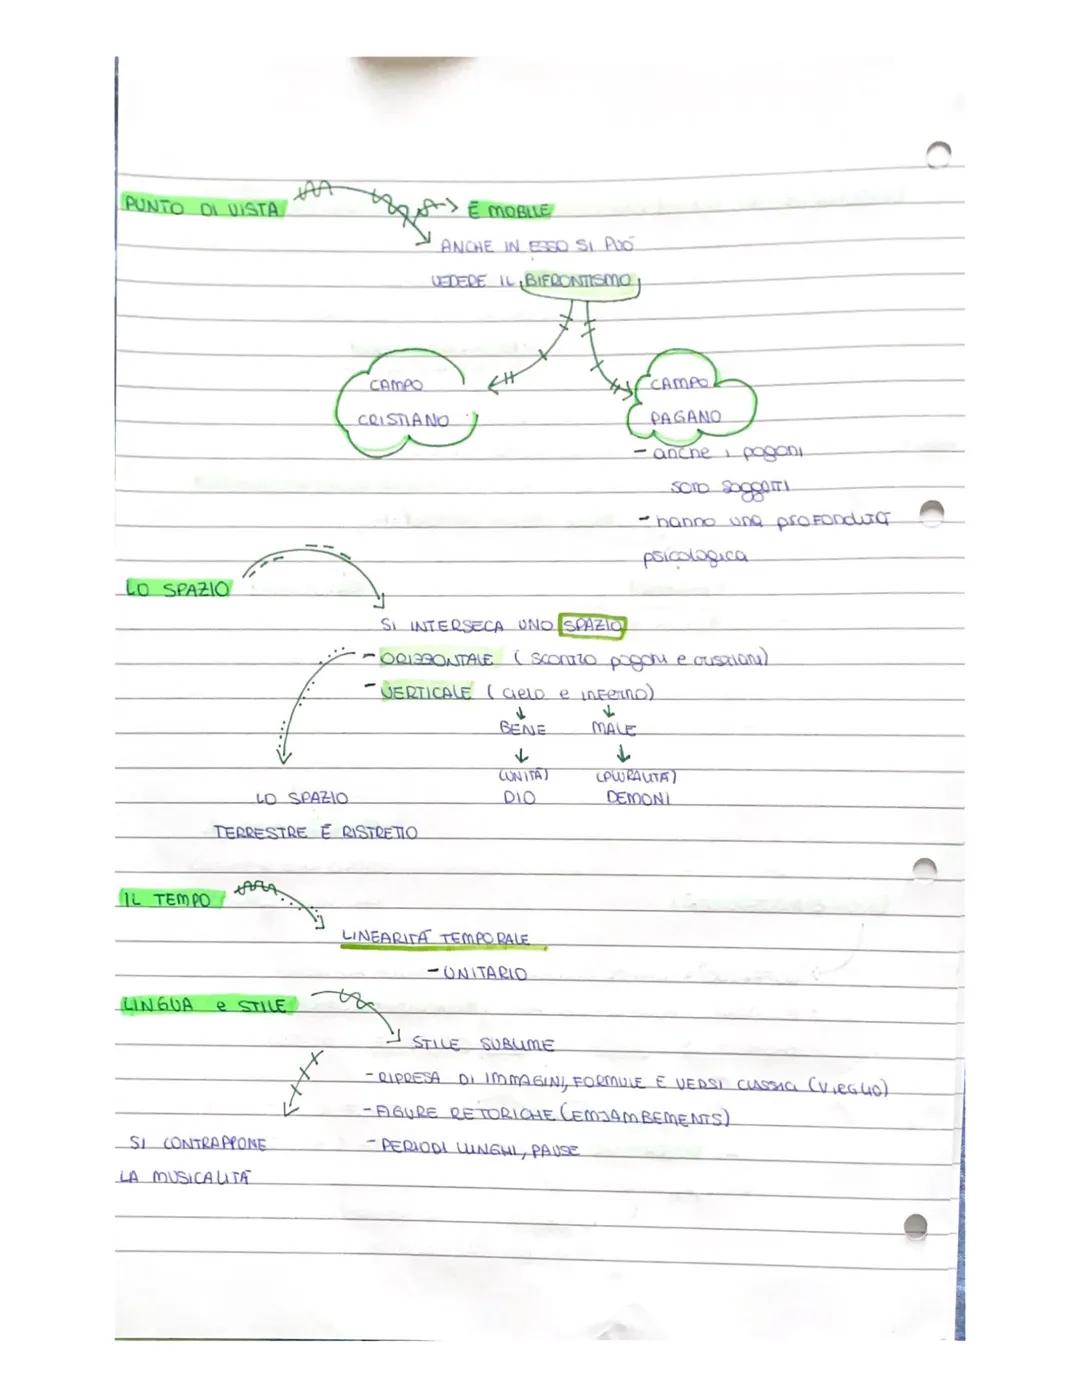 PUNTO DI VISTA
È MOBILE
ANCHE IN ESSO SI PUÒ
VEDERE IL BIFRONTISMO
CAMPO
CRISTIANO
CAMPO
PAGANO
- anche i pagani
sono soggetti
- hanno una profondità
psicologica
LO SPAZIO
SI INTERSECA UNO SPAZIO
- ORIZZONTALE (scontro pagani e cristiani)
- VERTICALE (cielo e inferno)
BENE MALE
(UNITÀ) (PLURALITÀ)
DIO DEMONI
LO SPAZIO
TERRESTRE È RISTRETTO
IL TEMPO
LINEARITÀ TEMPORALE
- UNITARIO
LINGUA e STILE
STILE SUBLIME
- RIPRESA DI IMMAGINI, FORMULE E VERSI CLASSICI (VIRGILIO)
- FIGURE RETORICHE (EMJAMBEMENTS)
- PERIODI LUNGHI, PAUSE
SI CONTRAPPONE
LA MUSICALITÀ